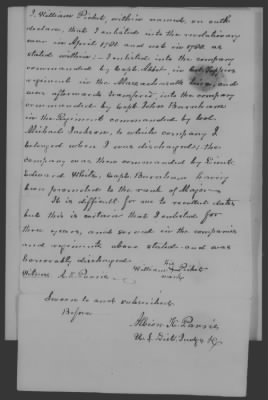 I, William Picket, within named, on oath
declare, that I enlisted into the revolutionary
war in April 1781 and not in 1780 as
stated within: — I enlisted into the company
commanded by Capt. in Col. Tuppers
regiment in the Massachusetts line, and
was afterwards transferred into the company
commanded by Capt. John Burnham
in the Regiment commanded by Col.
Michael Jackson, to which company I
belonged when I was discharged; the
company was then commanded by Lieut.
Edward White, Capt. Burnham having
been promoted to the rank of Major —
It is difficult for me to recollect dates
but this is certain that I enlisted for
three years, and served in the companies
and regiments above stated and was
honorably discharged.
his
William X Picket
mark
Witness A. K. Parris —
Sworn to and subscribed.
Before
Albion K. Parris
U. S. Dist. Judge